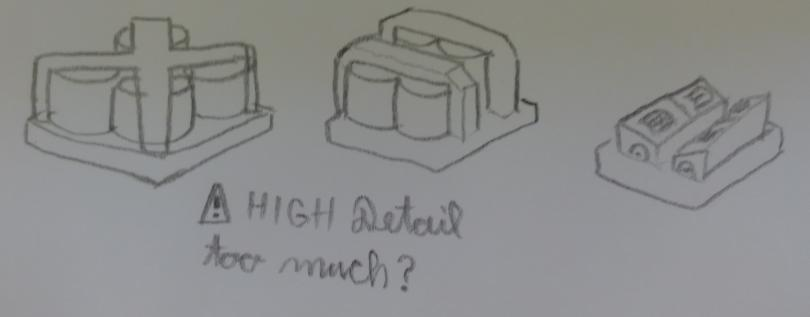 ⚠ HIGH Detail
too much?